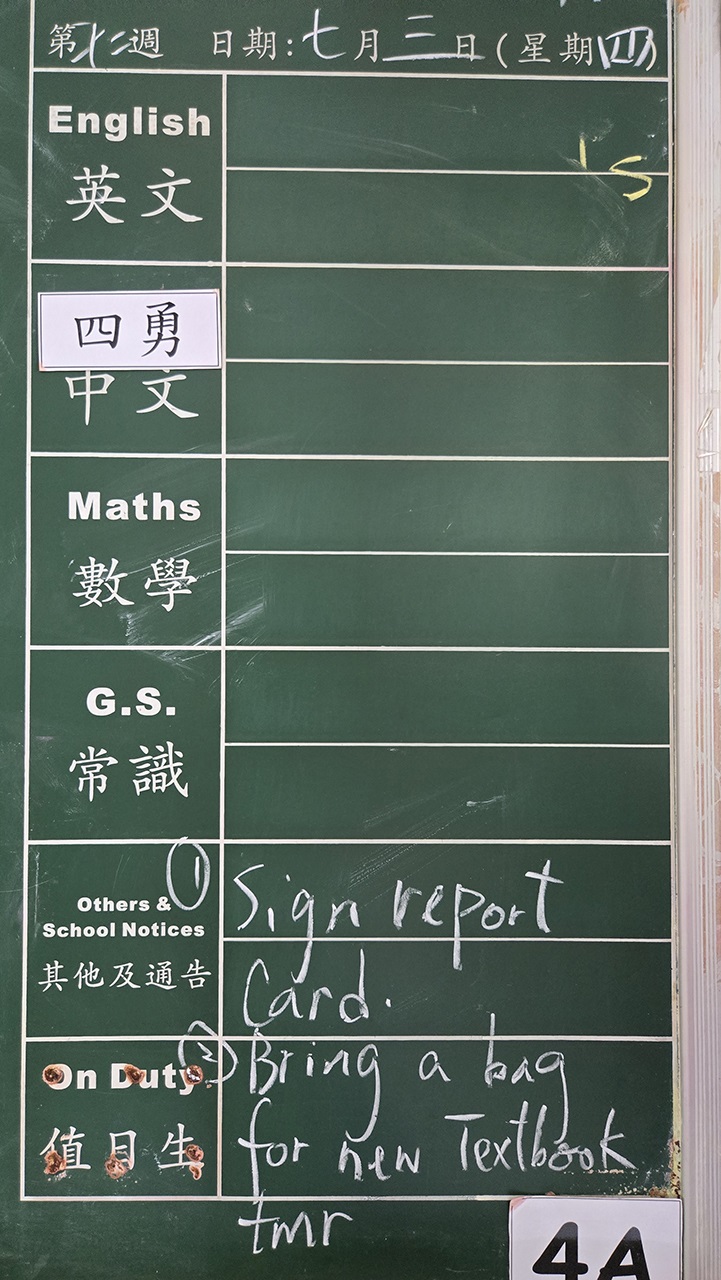 第十二週 日期:七月三日(星期四)
English
英文
's
四勇
中文
Maths
數學
G.S.
常識
Others &
School Notices
其他及通告
① Sign report
Card.
On Duty
值日生
② Bring a bag
for new Textbook
tmr
4A